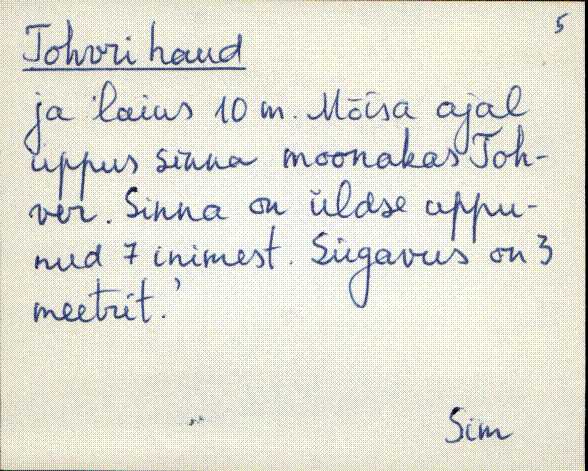 5
Tohvri haud
ja laius 10 m. Mõisa ajal
uppus sinna moonakas Toh-
ver. Sinna on üldse uppu-
nud 7 inimest. Sügavus on 3
meetrit.'
Sim